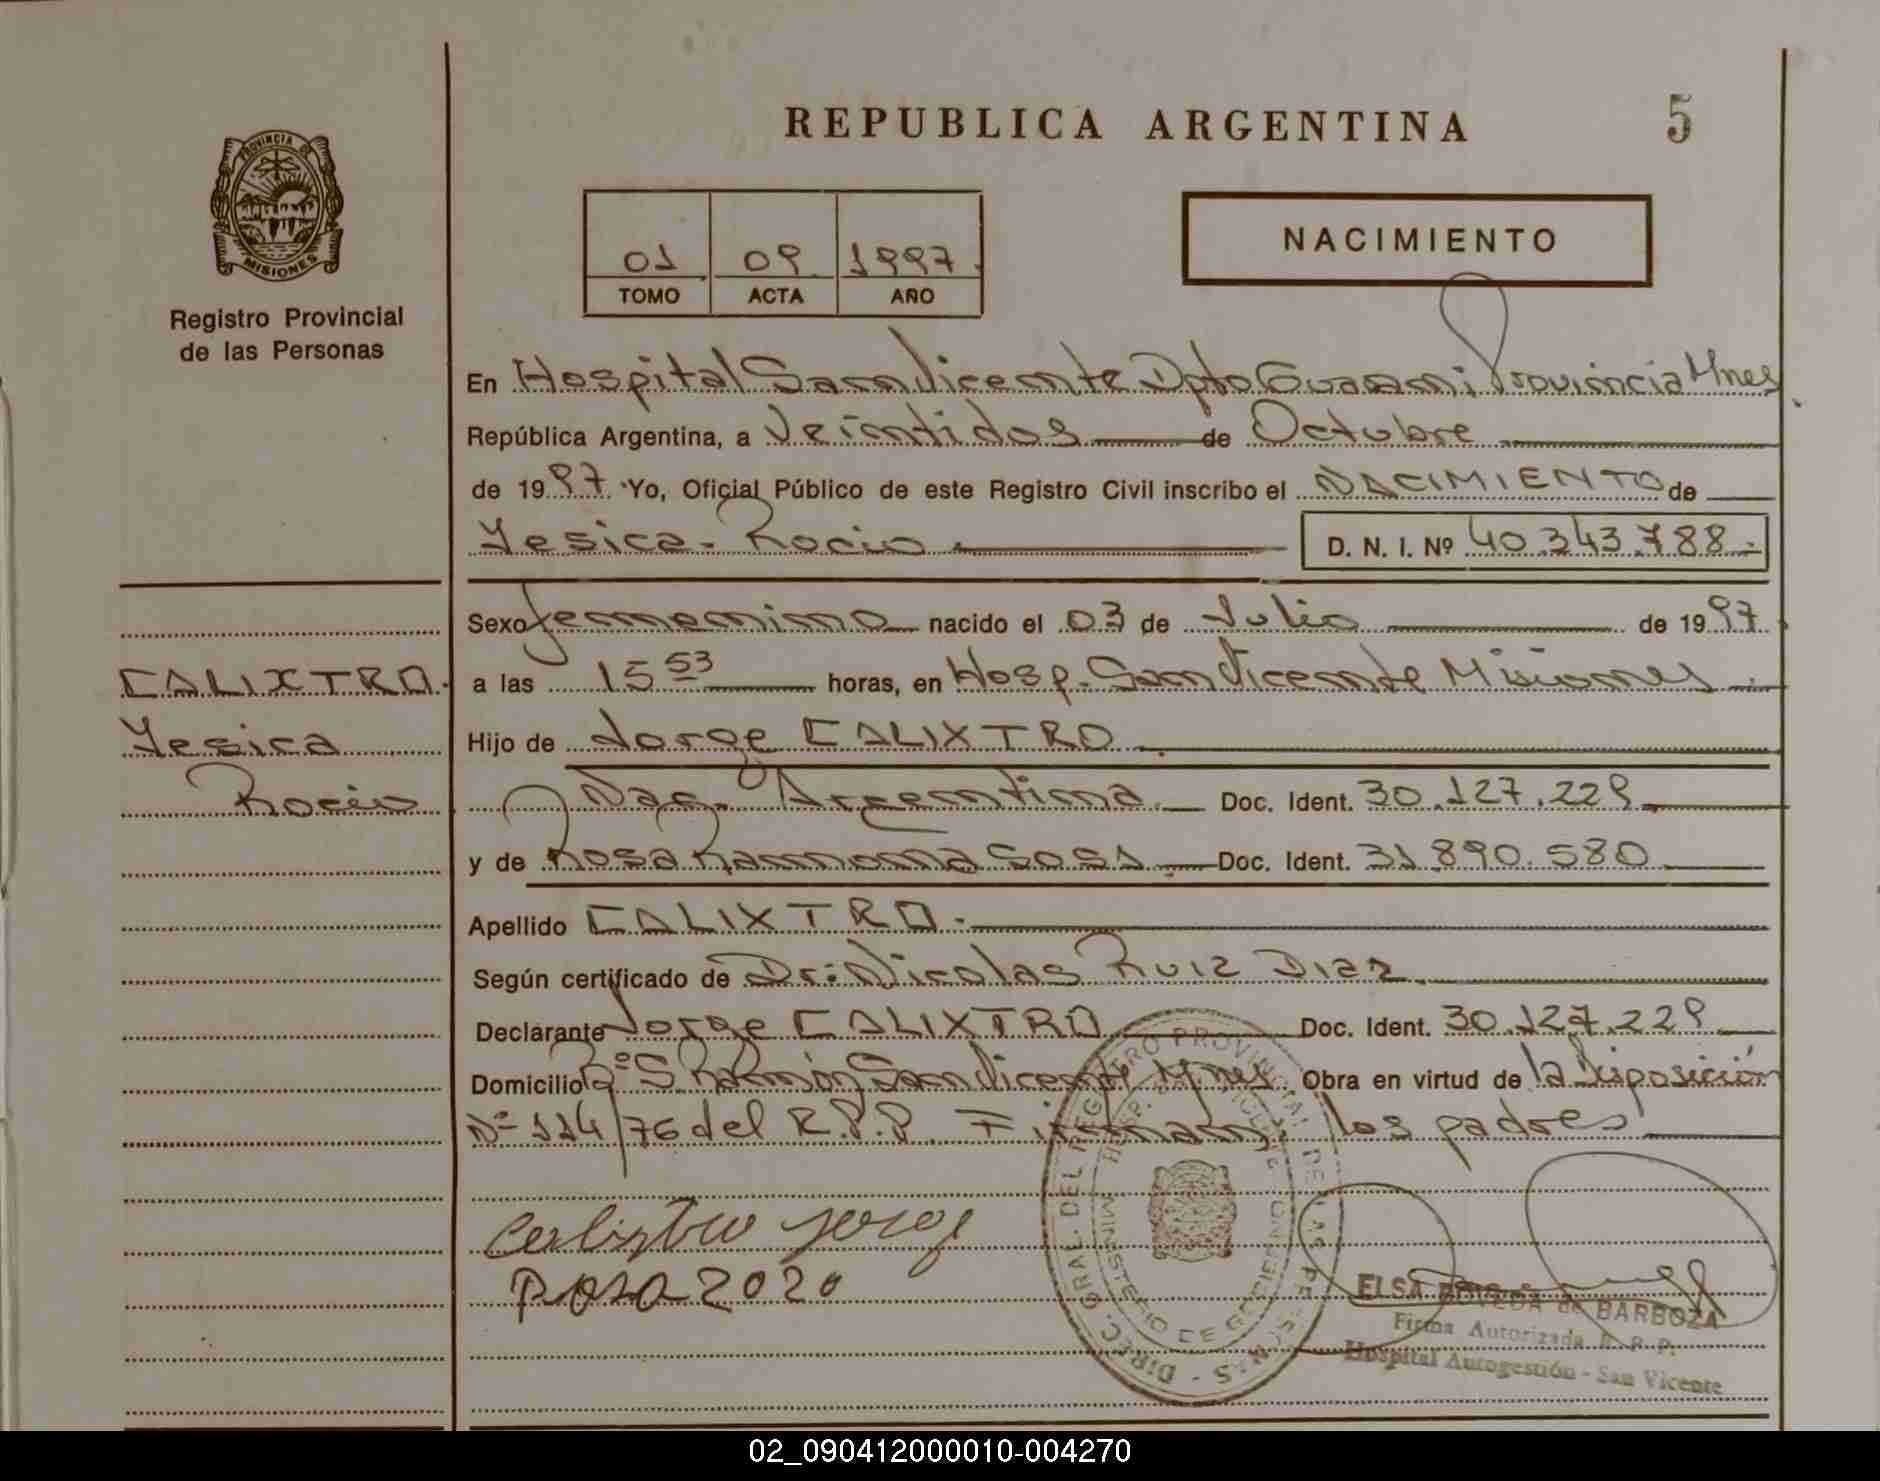 REPUBLICA ARGENTINA
5
PROVINCIA DE
MISIONES
Registro Provincial
de las Personas
01 09 1997
TOMO ACTA AÑO
NACIMIENTO
En Hospital San Vicente Dpto Guarani Provincia Mnes
República Argentina, a Veintidos de Octubre
de 1997. Yo, Oficial Público de este Registro Civil inscribo el NACIMIENTO de
Yesica - Rocio D. N. I. Nº 40.343.788.-
Sexo femenino nacido el 03 de Julio de 1997
a las 15 53 horas, en Hosp. San Vicente Misiones
Hijo de Jorge CALIXTRO
Nac. Argentina. Doc. Ident. 30.127.229
y de Rosa Ramona Sosa Doc. Ident. 31.890.580
Apellido CALIXTRO.
Según certificado de Dr: Nicolas Ruiz Diaz
Declarante Jorge CALIXTRO Doc. Ident. 30.127.229
Domicilio Bº S Ramón San Vicente Mnes Obra en virtud de la Disposición
Nº 114/76 del R.P.P. Firman: los padres
CALIXTRO.
Yesica
Rocio
Calixtro Jorge
ROSA
DIREC. GRAL. DEL REGISTRO PROVINCIAL DE LAS PERSONAS
MINISTERIO DE GOBIERNO
ELSA de BARBOZA
Firma Autorizada R. P. P.
Hospital Autogestión - San Vicente
02_090412000010-004270